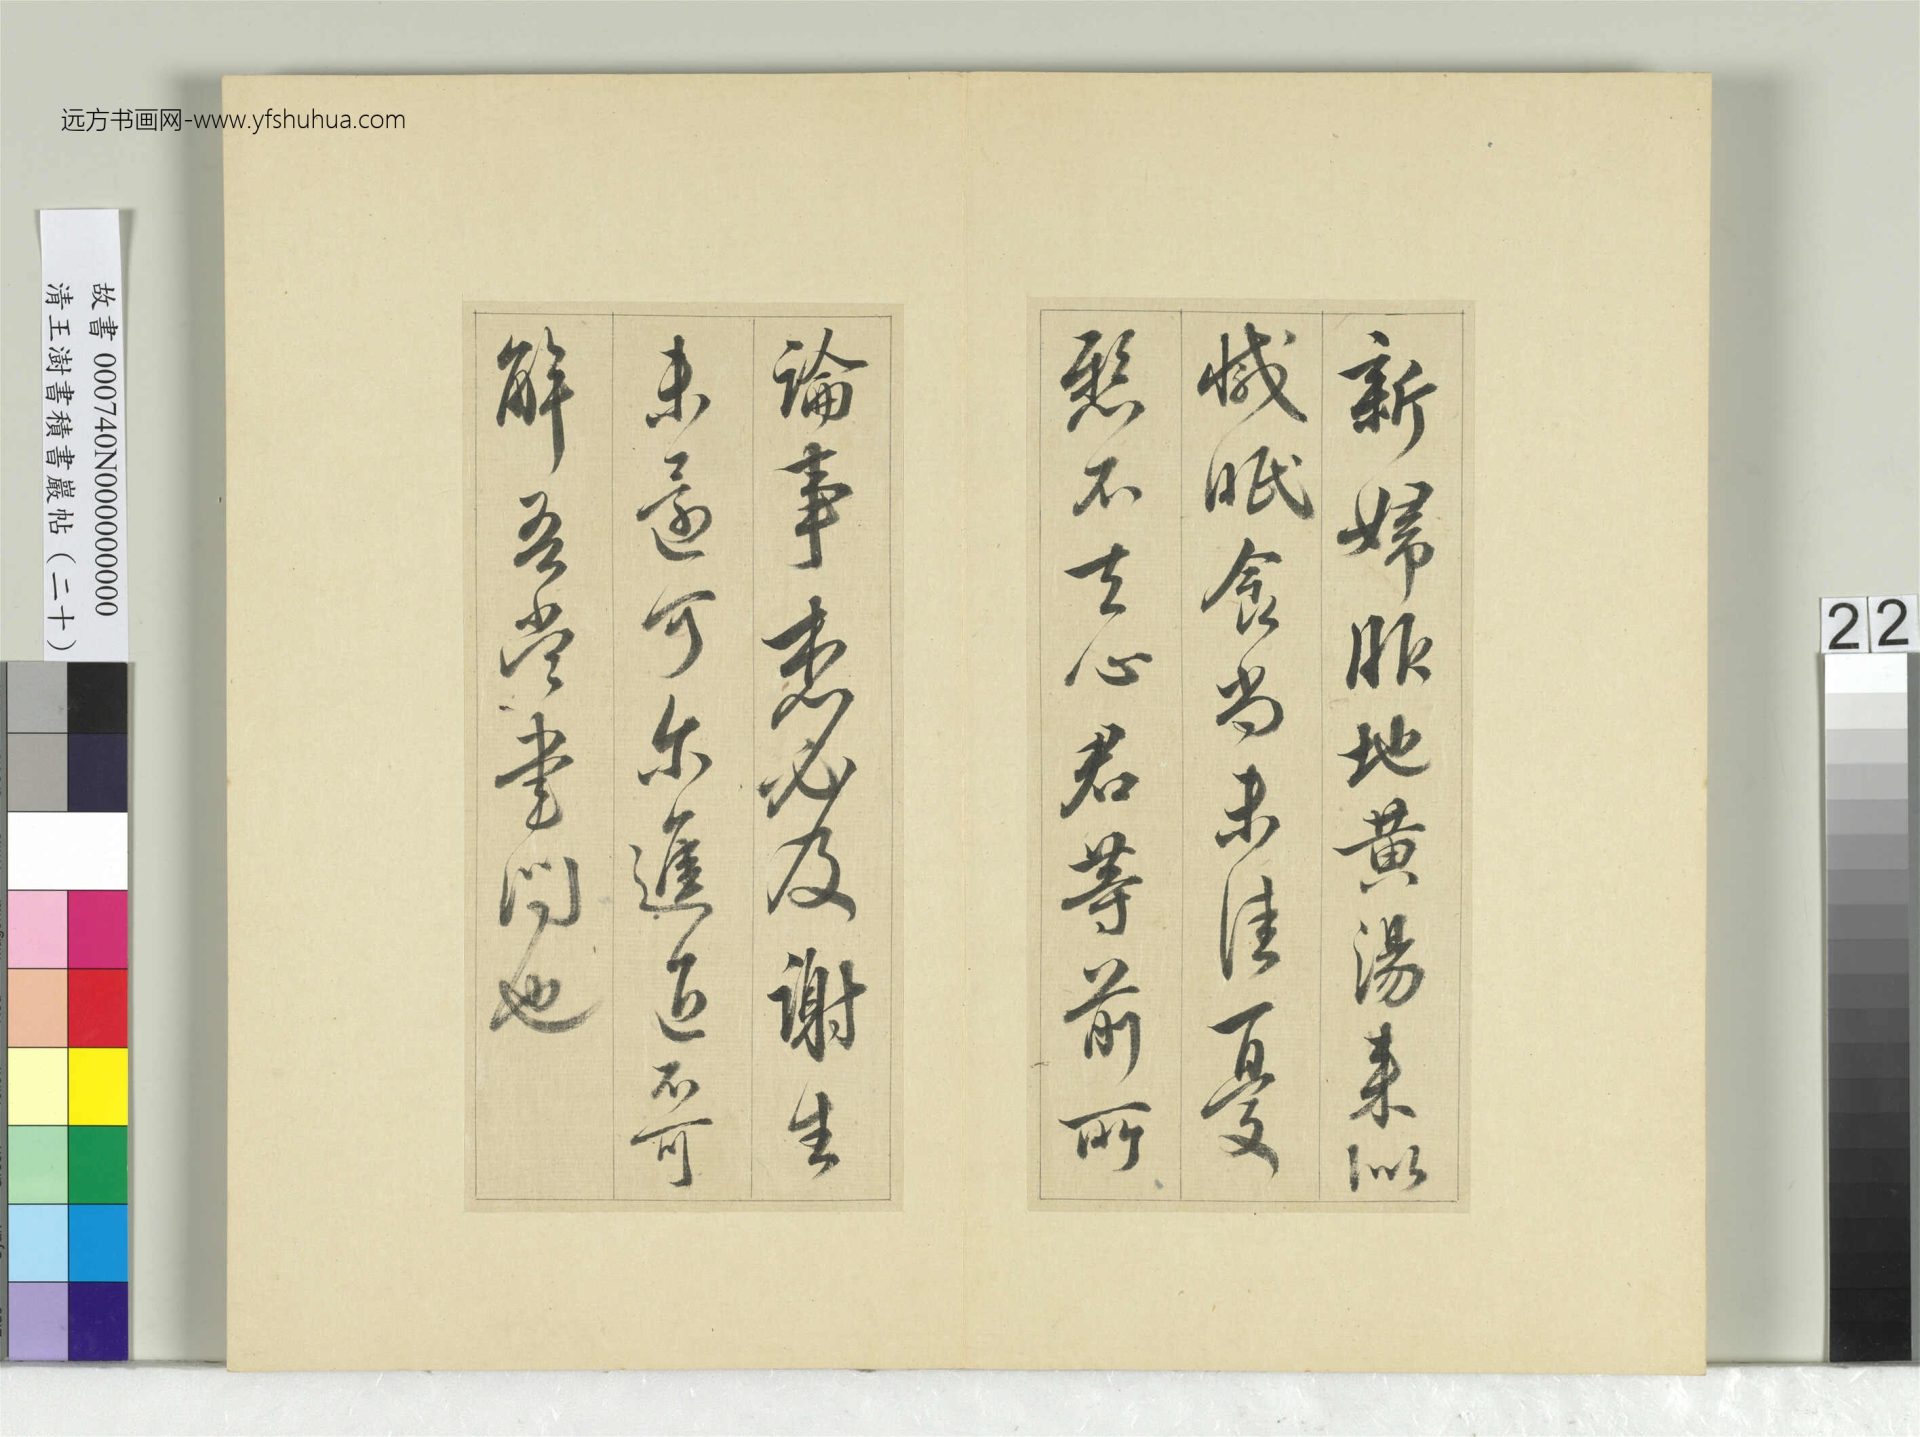 新婦服地黄湯来似
減眠食尚未佳憂
懸不去心君等前所
論事想必及謝生
未還可尔進退不可
解吾當書問也
远方书画网-www.yfshuhua.com
故書 000740N000000000
清王澍書積書巖帖（二十）
22